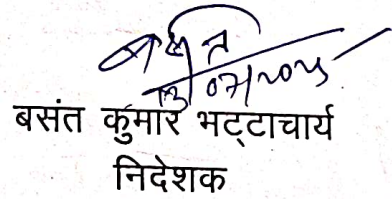 बसंत
बसंत कुमार भट्टाचार्य
निदेशक